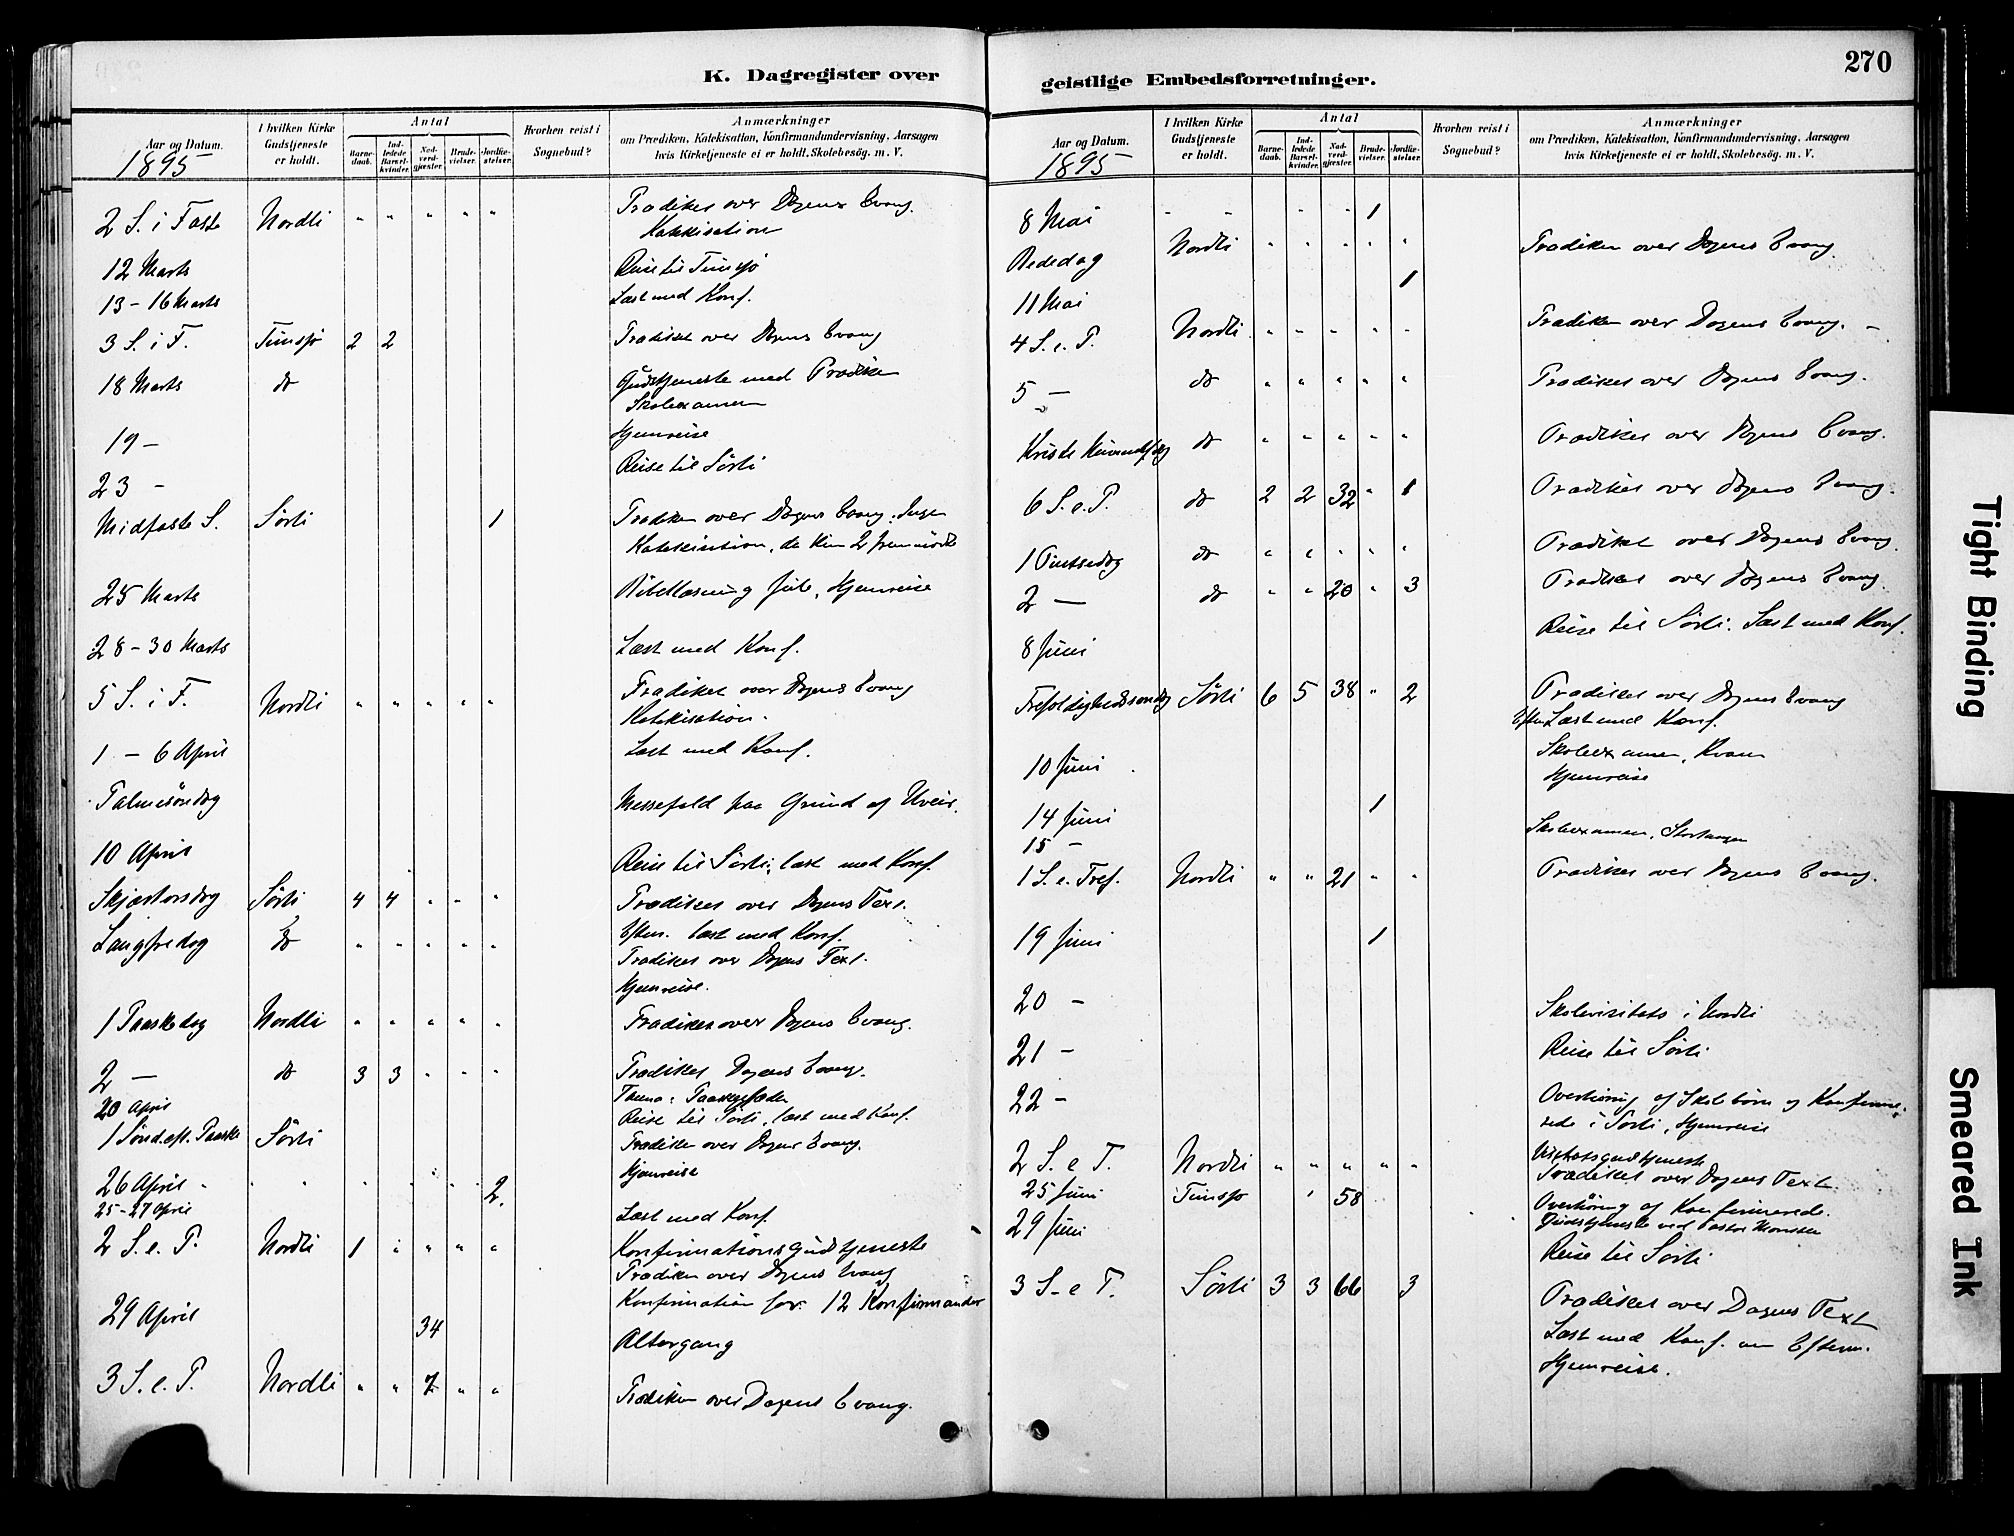 K. Dagregister over
Aar og Datum.
I hvilken Kirke Gudstjeneste er holdt.
Antal
Barnedaab.
Indledede Barselkvinder.
Nadverdgjæster.
Brudevielser.
Jordfæstelser.
Hvorhen reist i Sognebud?
Anmærkninger
om Prædiken, Katekisation, Konfirmandundervisning, Aarsagen
hvis Kirketjeneste ei er holdt. Skolebesög. m. V.
1895
2 S. i Faste Nordli " " " " " Prædiken over Dagens Evang.
Katekisation
12 Marts Reise til Tunsjø
13 - 16 Marts Læst med Konf.
3 S. i F. Tunsjø 2 2 Prædiket over Dagens Evang
18 Marts do Gudstjeneste med Prædiken
Skoleexamen
19 - Hjemreise
23 - Reise til Sørli
Midfaste S. Sørli 1 Prædiken over Dagens Evang. Ingen
Katekisation, da kun 2 fremmødte
25 Marts Bibellæsning , Hjemreise
28 - 30 Marts Læst med Konf.
5 S. i F. Nordli " " " " " Prædiket over Dagens Evang
Katekisation.
1 - 6 April Læst med Konf.
Palmesöndag Messefald paa Grund af Uveir.
10 April Reise til Sørli; læst med Konf.
Skjærtorsdag Sørli 4 4 " " " Prædiket over Dagens Text.
Efterm. læst med Konf.
Langfredag do " " " " " Prædiket over Dagens Text.
Hjemreise.
1 Paaskedag Nordli " " " " " Prædiken over Dagens Evang.
2 — do 3 3 " " " Prædiket Dagens Evang.
20 April Reise til Sørli, læst med Konf.
1 Sønd. eft. Paaske Sørli Prædiken over Dagens Evang.
Hjemreise
26 April " " " " " " 2
25-27 April Læst med Konf.
2 S. e. P. Nordli 1 " " " " Konfirmationsgudstjeneste
Prædiken over Dagens Evang
Konfirmation for 12 Konfirmander
29 April 34 Altergang
3 S. e. P. Nordli " " 7 " " Prædiken over Dagens Evang.
geistlige Embedsforretninger.
270
Aar og Datum.
I hvilken Kirke Gudstjeneste er holdt.
Antal
Barnedaab.
Indledede Barselkvinder.
Nadverdgjæster.
Brudevielser.
Jordfæstelser.
Hvorhen reist i Sognebud?
Anmærkninger
om Prædiken, Katekisation, Konfirmandundervisning, Aarsagen
hvis Kirketjeneste ei er holdt. Skolebesög. m. V.
1895
8 Mai " " " " 1
Bededag Nordli " " " " " Prædiken over Dagens Evang.
11 Mai 1
4 S. e. P. Nordli " " " " " Prædiken over Dagens Evang. -
5 — do " " " " " Prædiket over Dagens Evang.
Kristi Himmelfdag do " " " " " Prædiket over Dagens Evang.
6 S. e. P. do 2 2 32 " 1 Prædiket over Dagens Evang.
1 Pintsedag do " " " " " Prædiket over Dagens Evang.
2 — do " " 20 " 3 Prædiket over Dagens Evang.
8 Juni Reise til Sørli. Læst med Konf.
Trefoldighedssøndag Sørli 6 5 38 " 2 Prædiket over Dagens Evang
Efterm. Læst med Konf.
10 Juni Skoleexamen, Kvam
Hjemreise
14 Juni 1
15 - Skoleexamen,
1 S. e. Tref. Nordli " " 21 " " Prædiket over Dagens Evang.
19 Juni 1
20 - Skolevisitats i Nordli
21 - Reise til Sørli
22 - Overhøring af Skolebørn og Konfirme-
rede i Sørli, Hjemreise
2 S. e T. Nordli " " " " " Visitatsgudstjeneste
Prædiket over Dagens Text.
25 Juni Tunsjø " 58 Overhøring af Konfirmerede.
Gudstjeneste ved Pastor
29 Juni Reise til Sørli
3 S. e T. Sørli 3 3 66 3 Prædiket over Dagens Text
Læst med Konf. om Efterm.
Hjemreise.
Tight Binding
Smeared Ink